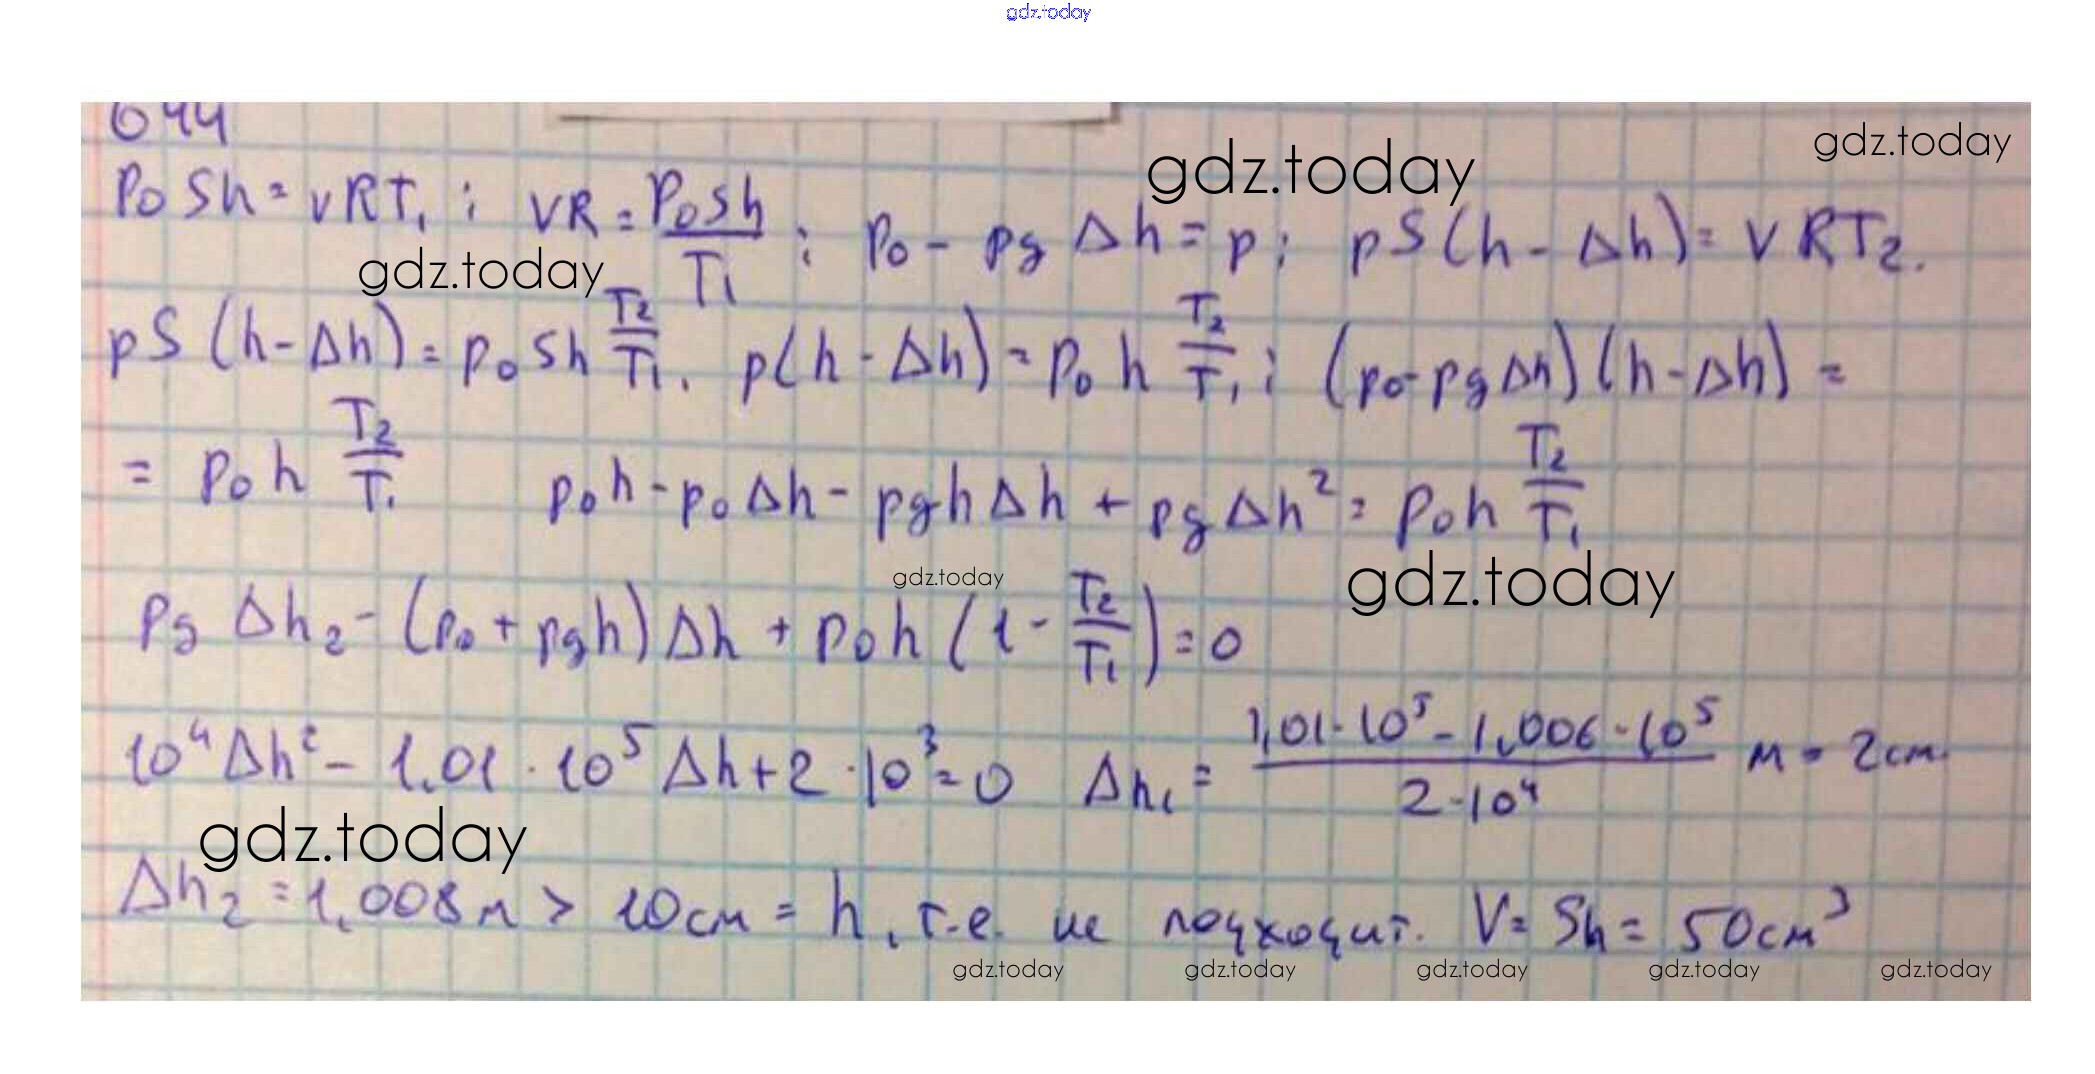 gdz.today
644
gdz.today gdz.today
P₀Sh = νRT₁; νR = P₀Sh/T₁; p₀ - ρgΔh = p; pS(h - Δh) = νRT₂.
gdz.today
pS(h - Δh) = p₀Sh T₂/T₁. p(h - Δh) = p₀h T₂/T₁; (p₀ - ρgΔh)(h - Δh) =
= p₀h T₂/T₁ p₀h - p₀Δh - ρghΔh + ρgΔh² = p₀h T₂/T₁
gdz.today gdz.today
ρgΔh₂ - (p₀ + ρgh)Δh + p₀h(1 - T₂/T₁) = 0
10⁴Δh² - 1,01·10⁵Δh + 2·10³ = 0 Δh₁ = (1,01·10⁵ - 1,006·10⁵)/(2·10⁴) м = 2см.
gdz.today
Δh₂ = 1,008м > 10см = h, т.е. не подходит. V = Sh = 50см³
gdz.today gdz.today gdz.today gdz.today gdz.today